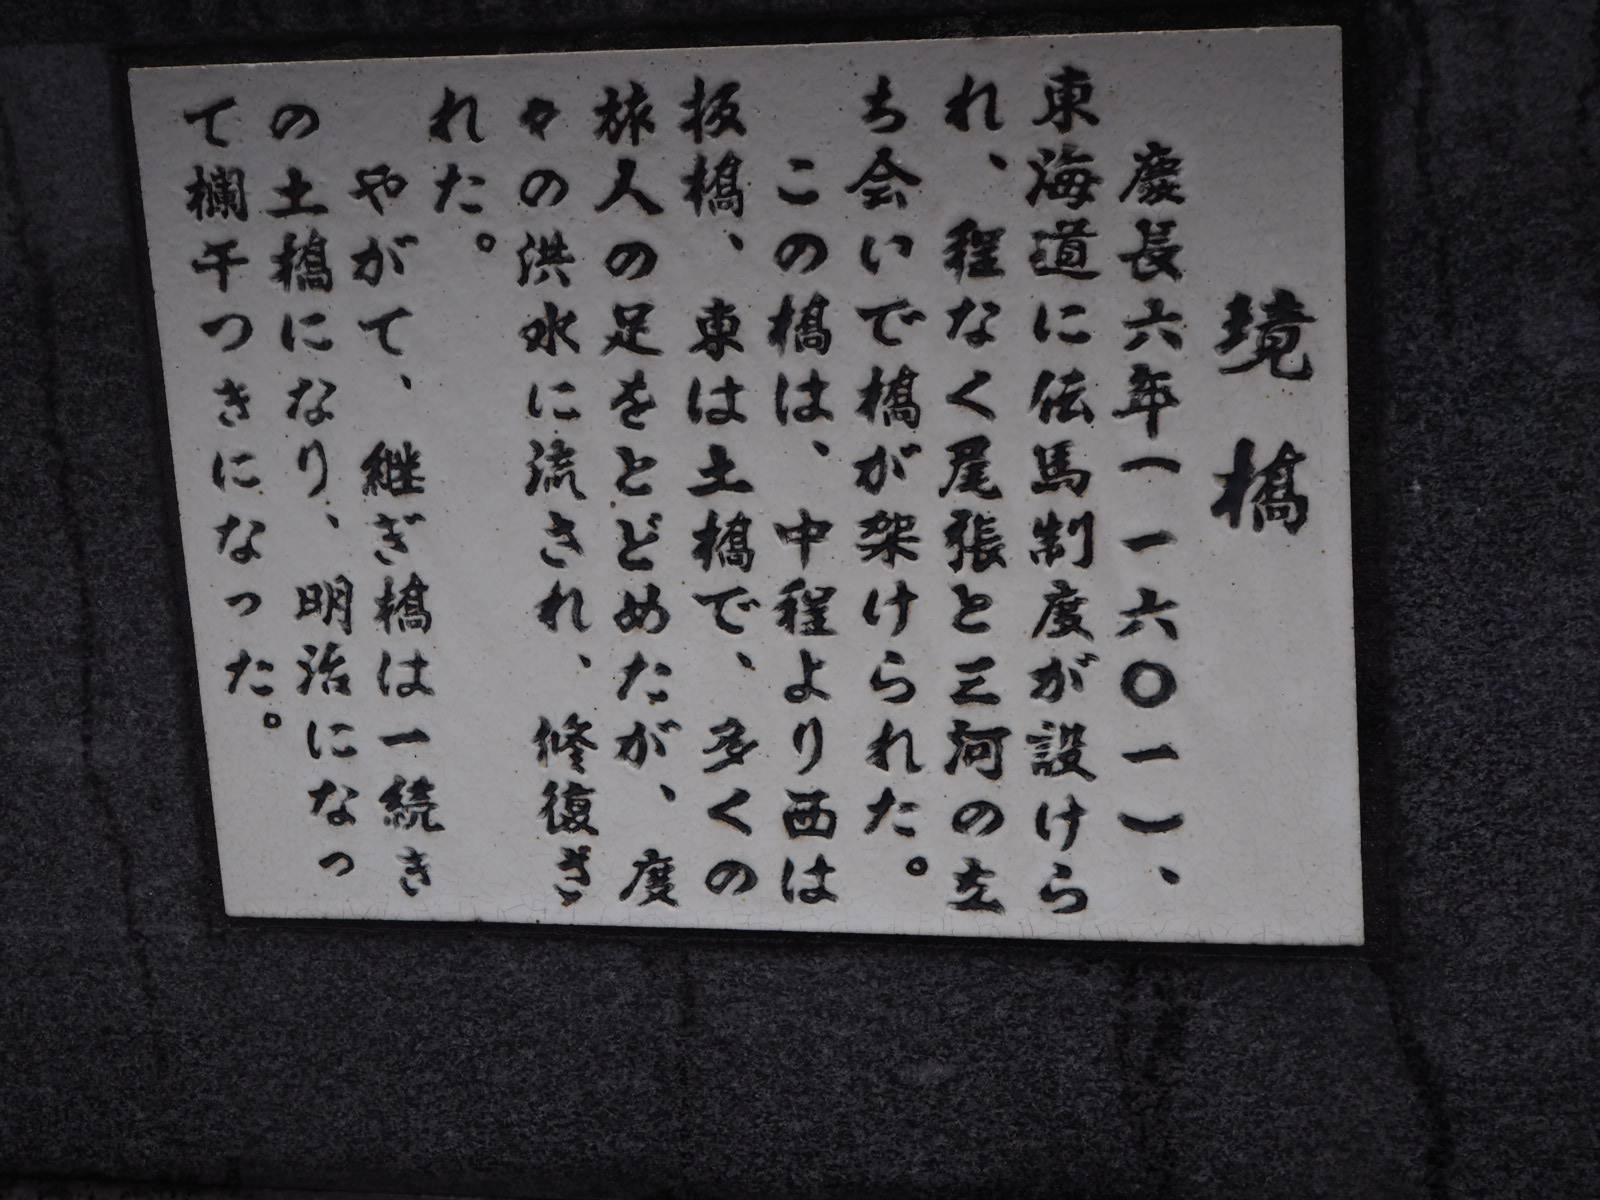 境橋
慶長六年(一六〇一)、
東海道に伝馬制度が設けら
れ、程なく尾張と三河の立
ち会いで橋が架けられた。
この橋は、中程より西は
板橋、東は土橋で、多くの
旅人の足をとどめたが、度
々の洪水に流され、修復さ
れた。
やがて、継ぎ橋は一続き
の土橋になり、明治になっ
て欄干つきになった。